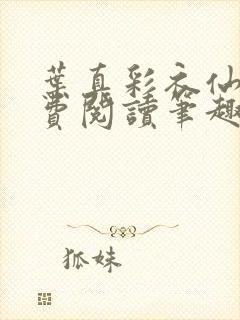 葉真彩衣仙
費閱讀筆趣
狐妹